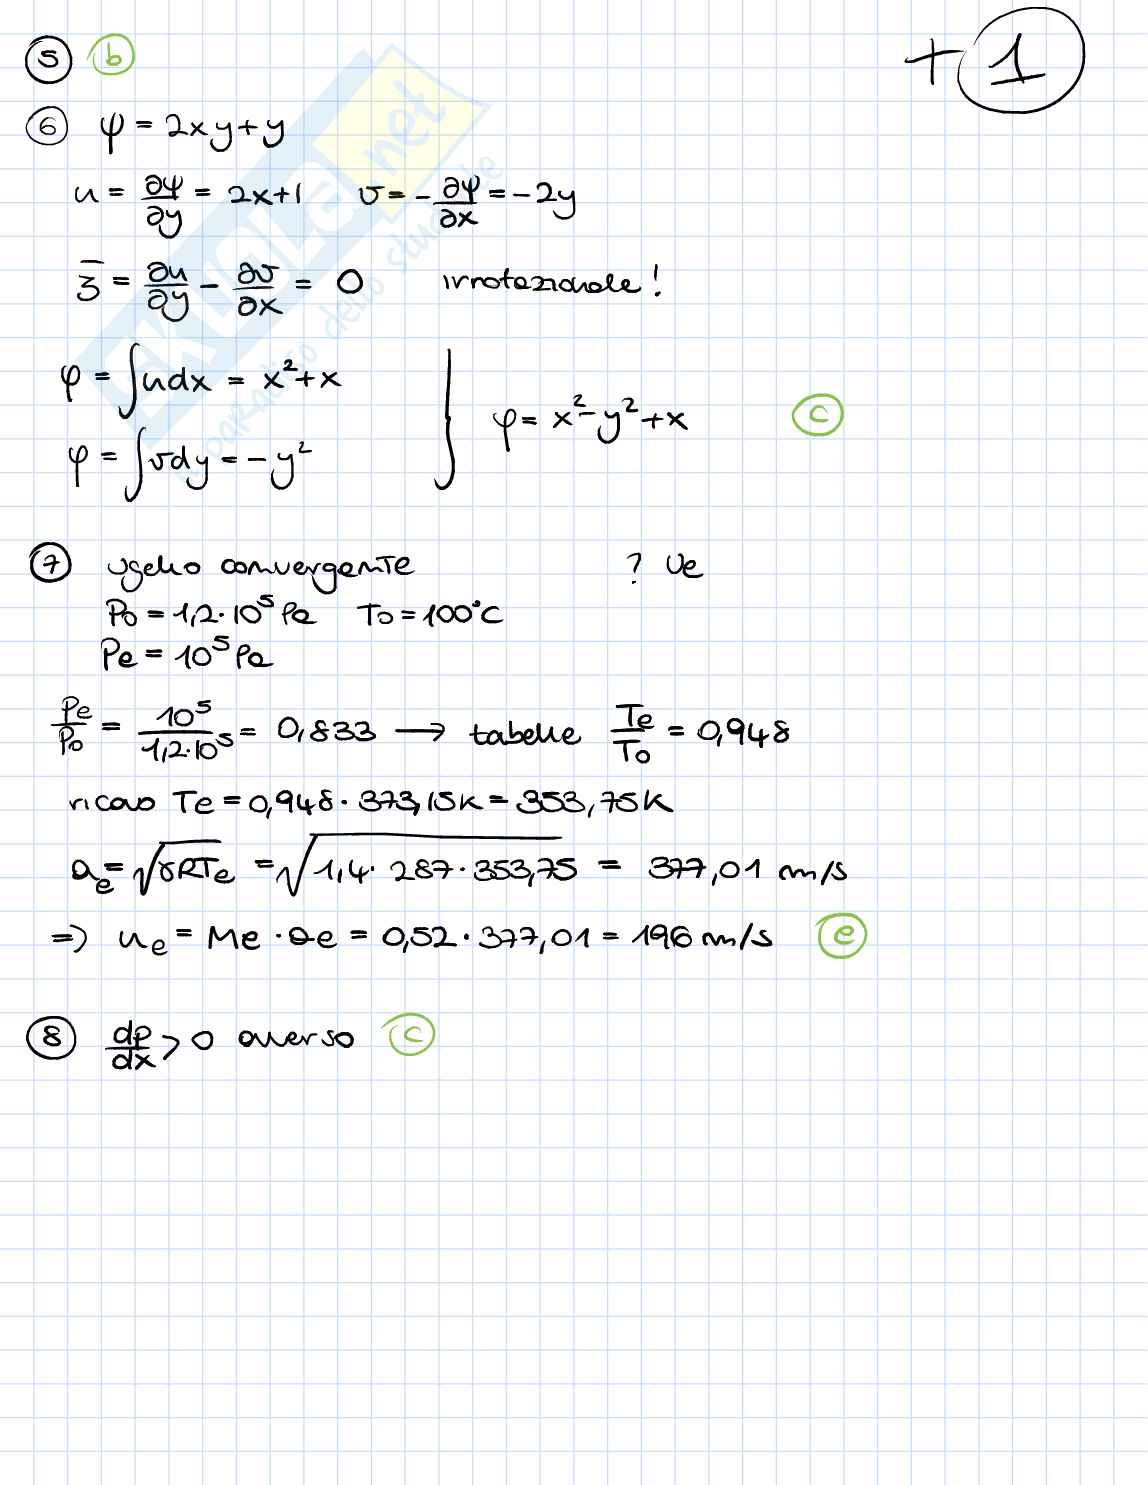 + 1
5 b
6 ψ = 2xy+y
u = ∂ψ/∂y = 2x+1 v = -∂ψ/∂x = -2y
ξ̄ = ∂u/∂y - ∂v/∂x = 0 irrotazionale!
φ = ∫udx = x²+x
φ = x²-y²+x c
φ = ∫vdy = -y²
7 ugello convergente ? Ue
P₀ = 1,2·10⁵ Pa T₀ = 100°C
Pe = 10⁵ Pa
Pe/P₀ = 10⁵/1,2·10⁵ = 0,833 → tabelle Te/T₀ = 0,948
ricavo Te = 0,948 · 373,15K = 353,75K
ae = √γRTe = √1,4· 287·353,75 = 377,01 m/s
=> ue = Me · ae = 0,52·377,01 = 196 m/s e
8 dp/dx > 0 avverso c
SKUOLA.net
paradiso dello studente